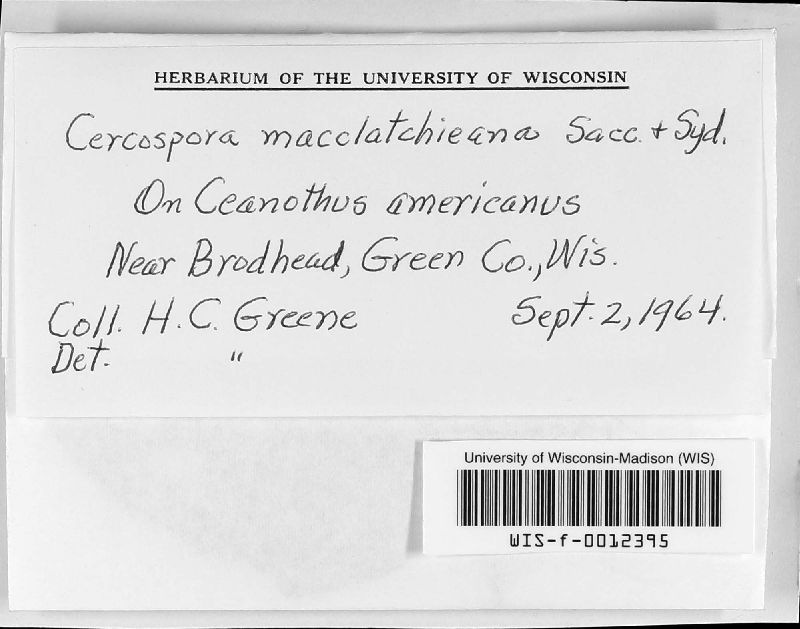 HERBARIUM OF THE UNIVERSITY OF WISCONSIN
Cercospora macclatchieana Sacc. + Syd.
On Ceanothus americanus
Near Brodhead, Green Co., Wis.
Coll. H. C. Greene Sept. 2, 1964.
Det. "
University of Wisconsin-Madison (WIS)
WIS-f-0012395